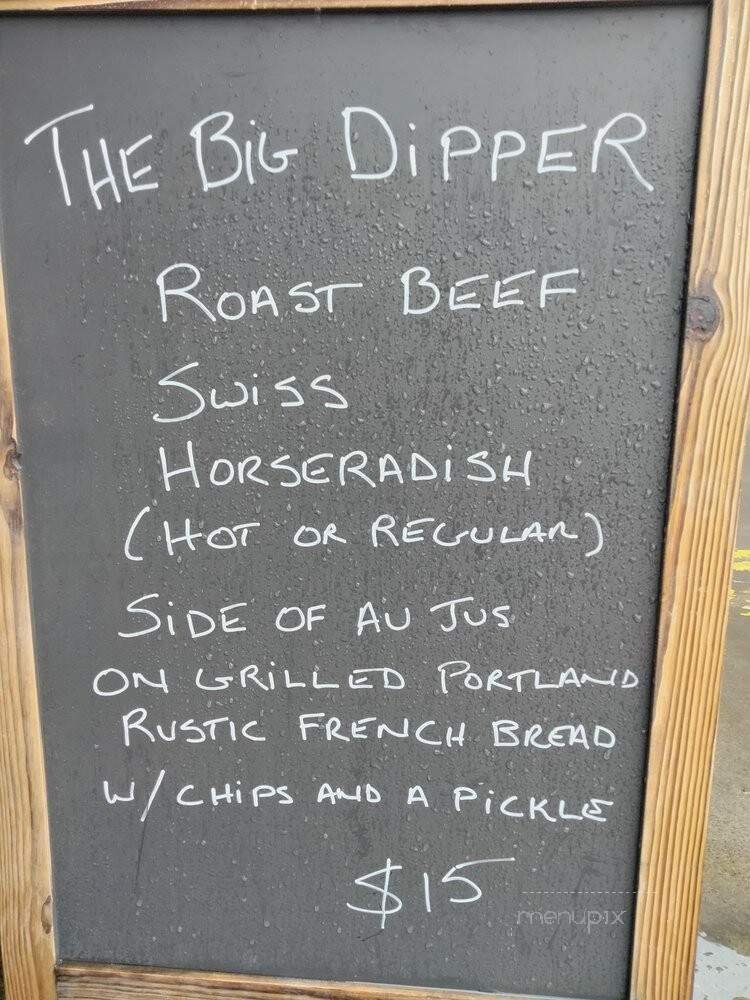 THE BIG DIPPER
ROAST BEEF
SWISS
HORSERADISH
(HOT OR REGULAR)
SIDE OF AU JUS
ON GRILLED PORTLAND
RUSTIC FRENCH BREAD
W/ CHIPS AND A PICKLE
$15
menupix